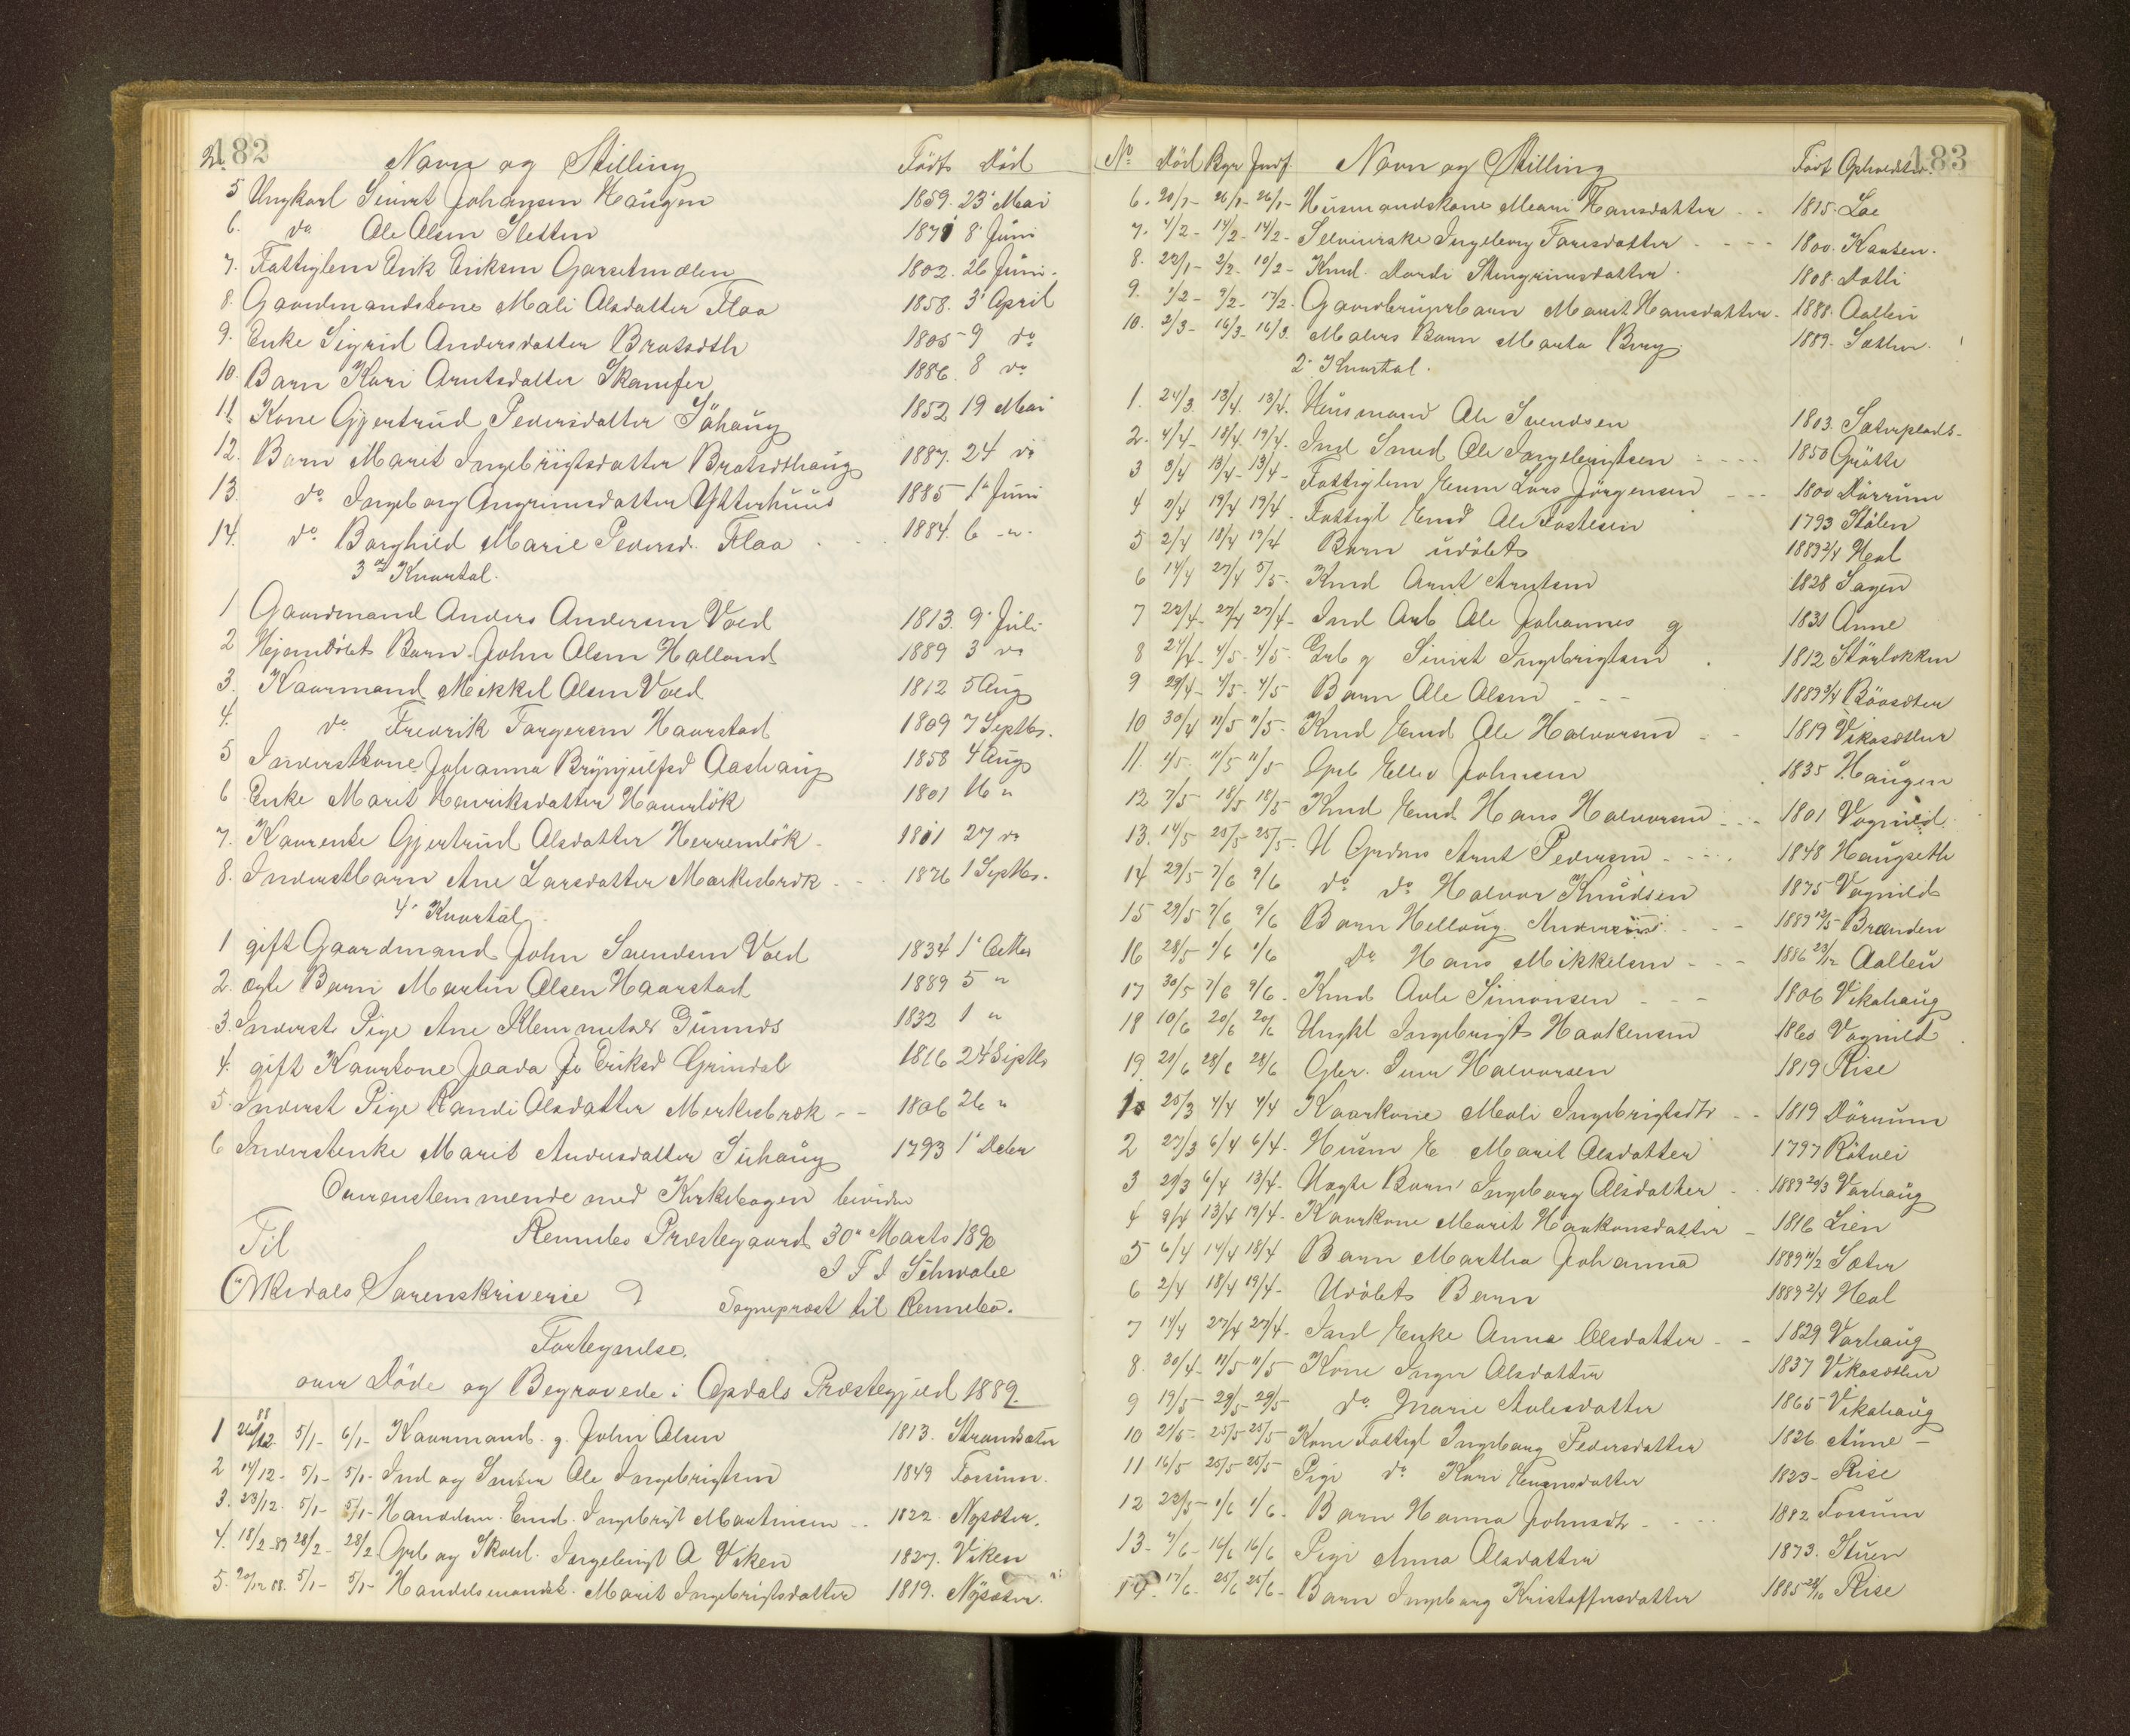 182
N. Navn og Stilling Født Död
5 Ungkarl Sivert Johansen Haugen 1859. 23' Mai
6. do Ole Olsen Sletten 1871 8' Juni
7. Fattiglem Erik Eriksen Garsetmælen 1802. 26 Juni.
8. Gaardmandskone Mali Olsdatter Flaa 1858. 3' April
9. Enke Sigrid Andersdatter Bratsdth 1805 - 9 do
10. Barn Kari Arntsdatter Skamfer 1886. 8 do
11. Kone Gjertrud Pedersdatter Söhaug 1852 19 Mai
12. Barn Marit Ingebrigtsdatter Bratsethaug 1887. 24 do
13. do Ingeborg Angrimsdatter Ytterhuus 1885 1' Juni
14. do Borghild Marie Pedersd. Flaa 1884. 6 - " -
3die Kvartal.
1 Gaardmand Anders Andersen Vold 1813. 9' Juli
2 Hjemdöbt Barn John Olsen Halland 1889 3 do
3. Kaarmand Mikkel Olsen Vold 1812 5 Aug
4. do Fredrik Torgersen Haarstad 1809 7 Septbr.
5 Inderstkone Johanna Brynjulfsd Aashaug 1858 4 Aug
6 Enke Marit Henriksdatter Haverlök 1801 16 "
7. Kaarenke Gjertrud Olsdatter Herremlök - 1811 27 do
8. Inderstbarn Ane Larsdatter Merkesbrok - - 1876 1 Septbr.
4' Kvartal
1 gift Gaardmand John Svendsen Vold 1834 1' Octbr
2. ægte Barn Martin Olsen Haarstad 1889 5 "
3. Inderst Pige Ane Klemmetsdr Gunnes 1832 1 "
4. gift Kaarkone Jaada Jo Eriksd Grindal 1816 24 Septbr
5. Inderst Pige Randi Olsdatter Merkesbrok - - 1806 26 "
6 Inderstenke Marit Andersdatter Suhaug 1793 1' Decbr
Overensstemmende med Kirkebogen bevidner
Rennebo Præstegaard 30te Marts 1890
Til J F J Schwabe
Orkedals Sorenskriverie Sogneprest til Rennebo.
Fortegnelse
over Döde og Begravede i Opdals Præstegjeld 1889.
1 26/12 88 5/1 - 6/1 - Kaarmand g. John Olsen 1813. Strandsæter
2 14/12 - 5/1 - 5/1 - Ind og Snider Ole Ingebrigtsen 1849 Fossum.
3. 23/12. 5/1 - 5/1 - Handelsm. Emd. Ingebrigt Martinsen - - 1822. Nysæter.
4. 18/2 - 89 28/2 - 28/2 Gprb og Skold. Ingebrigt O Viken 1827. Viken
5. 20/12 88. 5/1 - 5/1 - Handelsmandsk. Marit Ingebrigtsdatter 1819. Nysæter.
183
No Död Bgr Jndf. Navn og Stilling Född Opholdsted.
6. 20/1 - 26/1 - 26/1 - Husmandskone Mari Hansdatter - - 1815. Loe
7. 4/2 - 14/2 - 14/2 - Selveierske Ingeborg Toresdatter - - - - 1800. Kaasen.
8. 22/1 - 2/2 - 10/2 - Kmd. Dordi Stengrimsdatter. 1808. Dotli
9. 1/2 - 9/2 - 17/2 - Gaardbrugerbarn Marit Hansdatter - 1888. Aalbu
10. 2/3 - 16/3 - 16/3. Malers Barn Marta Berg 1889. Sæther.
2' Kvartal.
1. 24/3. 13/4. 13/4. Husmand Ole Svendsen 1803. Sæterplads -
2. 4/4 - 18/4. 19/4. Ind Smed Ole Ingebrigtsen - - - - 1850 Grötte
3 3/4 13/4 - 13/4 - Fattiglem Enm Lars Jörgensen - - - 1800 Dörrum
4 7/4 19/4 19/4. Fattigl Emd Ole Fostesen 1793 Stölen
5 2/4 18/4 19/4 Barn udöbt 1889 2/4 Hevl
6 14/4 27/4 5/5 - Kmd Arnt Arntsen 1828 Sagen
7 22/4 - 27/4 27/4 - Ind Arb Ole Johannes g 1831 Aune
8 24/4 - 4/5 - 4/5 - Grb g Sivert Ingebrigtsen . 1812 Störlokken
9 29/4 - 4/5 - 4/5 Barn Ole Olsen - - - 1889 9/4 Böasæter
10 30/4 11/5 11/5 - Kmd Emd Ole Halvorsen - - 1819 Vikasætter
11. 4/5. 11/5 11/5 Gprb Ellev Johnsen 1835 Haugen
12 7/5 18/5 18/5 - Kmd Emd Hans Halvorsen - - - 1801 Vognild
13. 14/5 25/5 - 25/5 - U Gprdm Arnt Pedersen - - - . 1848 Haugseth
14 29/5 7/6 9/6 do do Halvor Knudsen 1875 Vognild
15 29/5 7/6 9/6 Barn Hellaug - - - 1889 12/5 Brænden
16 28/5 1/6 1/6 do Hans Mikkelsen - - - 1886 23/12 Aalbu
17 30/5 7/6 9/6. Kmd Ole Simonsen - - - 1806 Vikahaug
18 10/6 20/6 20/6 Ungkl Ingebrigt Haakensen 1860 Vognild
19. 21/6 28/6 28/6 Gbr. Iver Halvorsen 1819 Rise
1. 25/3 4/4 4/4 Kaarkone Mali Ingebrigtsdtr - - 1819 Dörrum
2 27/3 6/4 6/4. Husm E Marit Olsdatter 1797 Rötvei
3 21/3 6/4 13/4 - Uægte Barn Ingeborg Olsdatter - - 1889 20/3 Vorhaug
4 9/4 13/4 19/4. Kaarkone Marit Haakonsdatter - 1816 Lien
5 6/4 14/4 18/4 Barn Martha Johanna 1889 11/2 Sæter
6 2/4 18/4 19/4 - Udöbt Barn 1889 2/4 Hevl
7 14/4 27/4 27/4 - Ind Enke Anna Olsdatter - - 1829 Vorhaug
8. 30/4 - 11/5 - 11/5 - Kone Inger Olsdatter 1837 Vikasætter
9 19/5 - 29/5 - 29/5 - do Marie Aolesdatter 1865 - Vikahaug
10 21/5 - 25/5 - 25/5 - Kone Fattigl Ingeborg Pedersdatter 1826 Aune -
11 16/5 25/5 - 25/5 - Pige do Kari 1823 - Rise
12 22/5 - 1/6 1/6 - Barn Hanna Johnsdtr - - - - 1882 Fossum
13 - 7/6 - 16/6 16/6 Pige Anna Olsdatter 1873. Stuen
14. 17/6. 25/6 25/6 - Barn Ingeborg Kristoffersdatter 1885 28/10 Rise